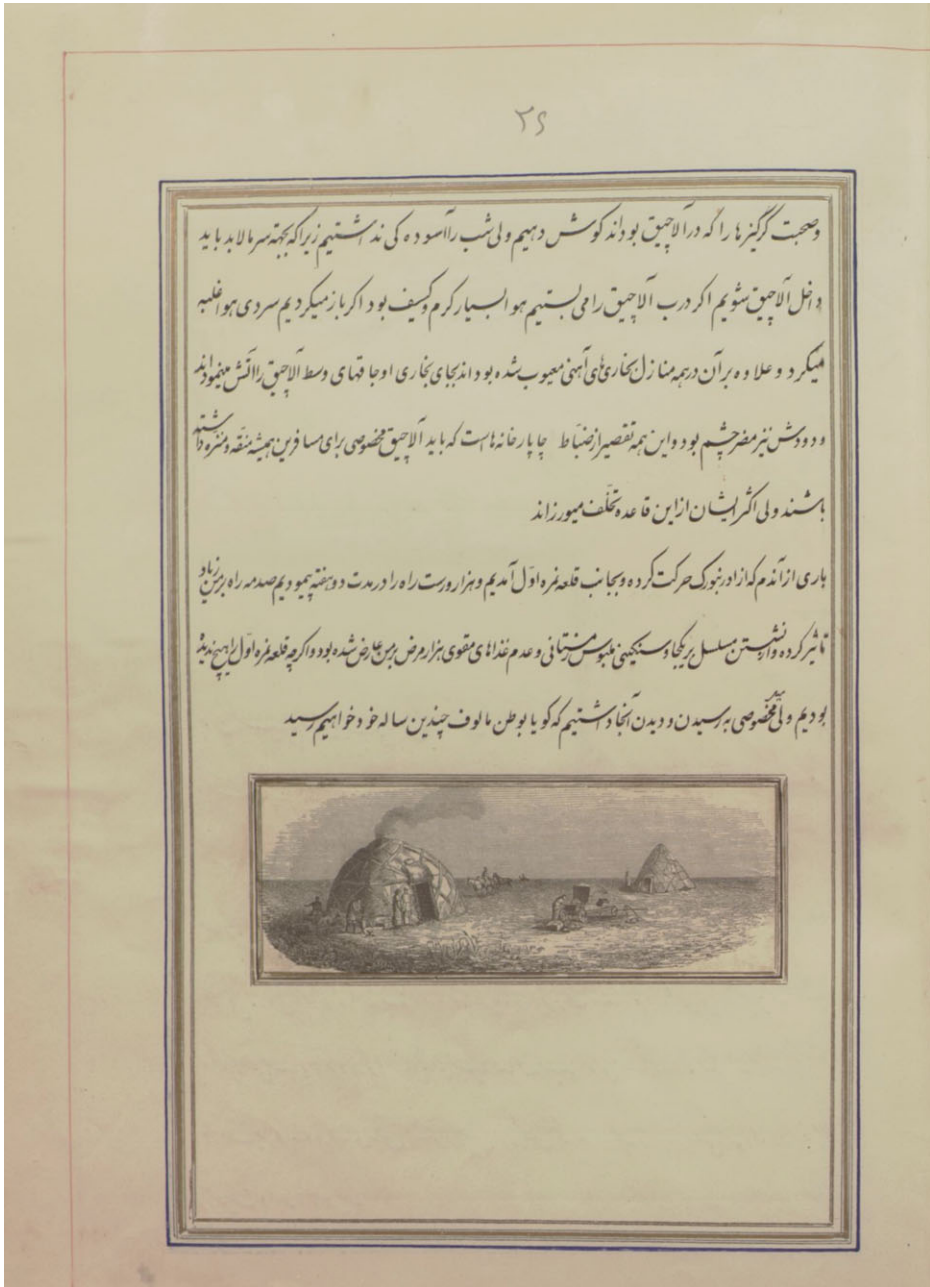 ۲۶
وصحبت گرگیزها را که در آلاچیق بودند کوش دهیم ولی شب را آسوده کی نداشتیم زیرا که بجهته سرما لابد باید
داخل آلاچیق شویم اکر درب آلاچیق را می بستیم هوا بسیار کرم وکسیف بود اکر باز میکردیم سردی هوا غلبه
میکرد و علاوه بر آن در همه منازل بخاری های آهنی معیوب شده بودند بجای بخاری اوجاقهای وسط آلاچیق را آتش مینمودند
و دودش نیز مضر چشم بود واین همه تقصیر از ضباط چاپارخانه هاست که باید آلاچیق مخصوصی برای مسافرین همیشه منقه ومنزه داشته
باشند ولی اکثر ایشان از این قاعده تخلف میورزاند
باری از آندم که از ادرنبورک حرکت کرده وبجانب قلعه نمره اول آمدیم وهزار ورست راه را در مدت دو هفته پیمودیم صدمه راه بر من زیاد
تاثیر کرده واز نشستن مسلسل بریکجا وسنکینی ملبوس زمستانی وعدم غذاهای مقوی هزار مرض بر من عارض شده بود واکرچه قلعه نمره اول را هیچ ندیده
بودیم ولی مخصوصی به رسیدن و دیدن آنجا داشتیم که کویا بوطن مالوف چندین ساله خود خواهیم رسید